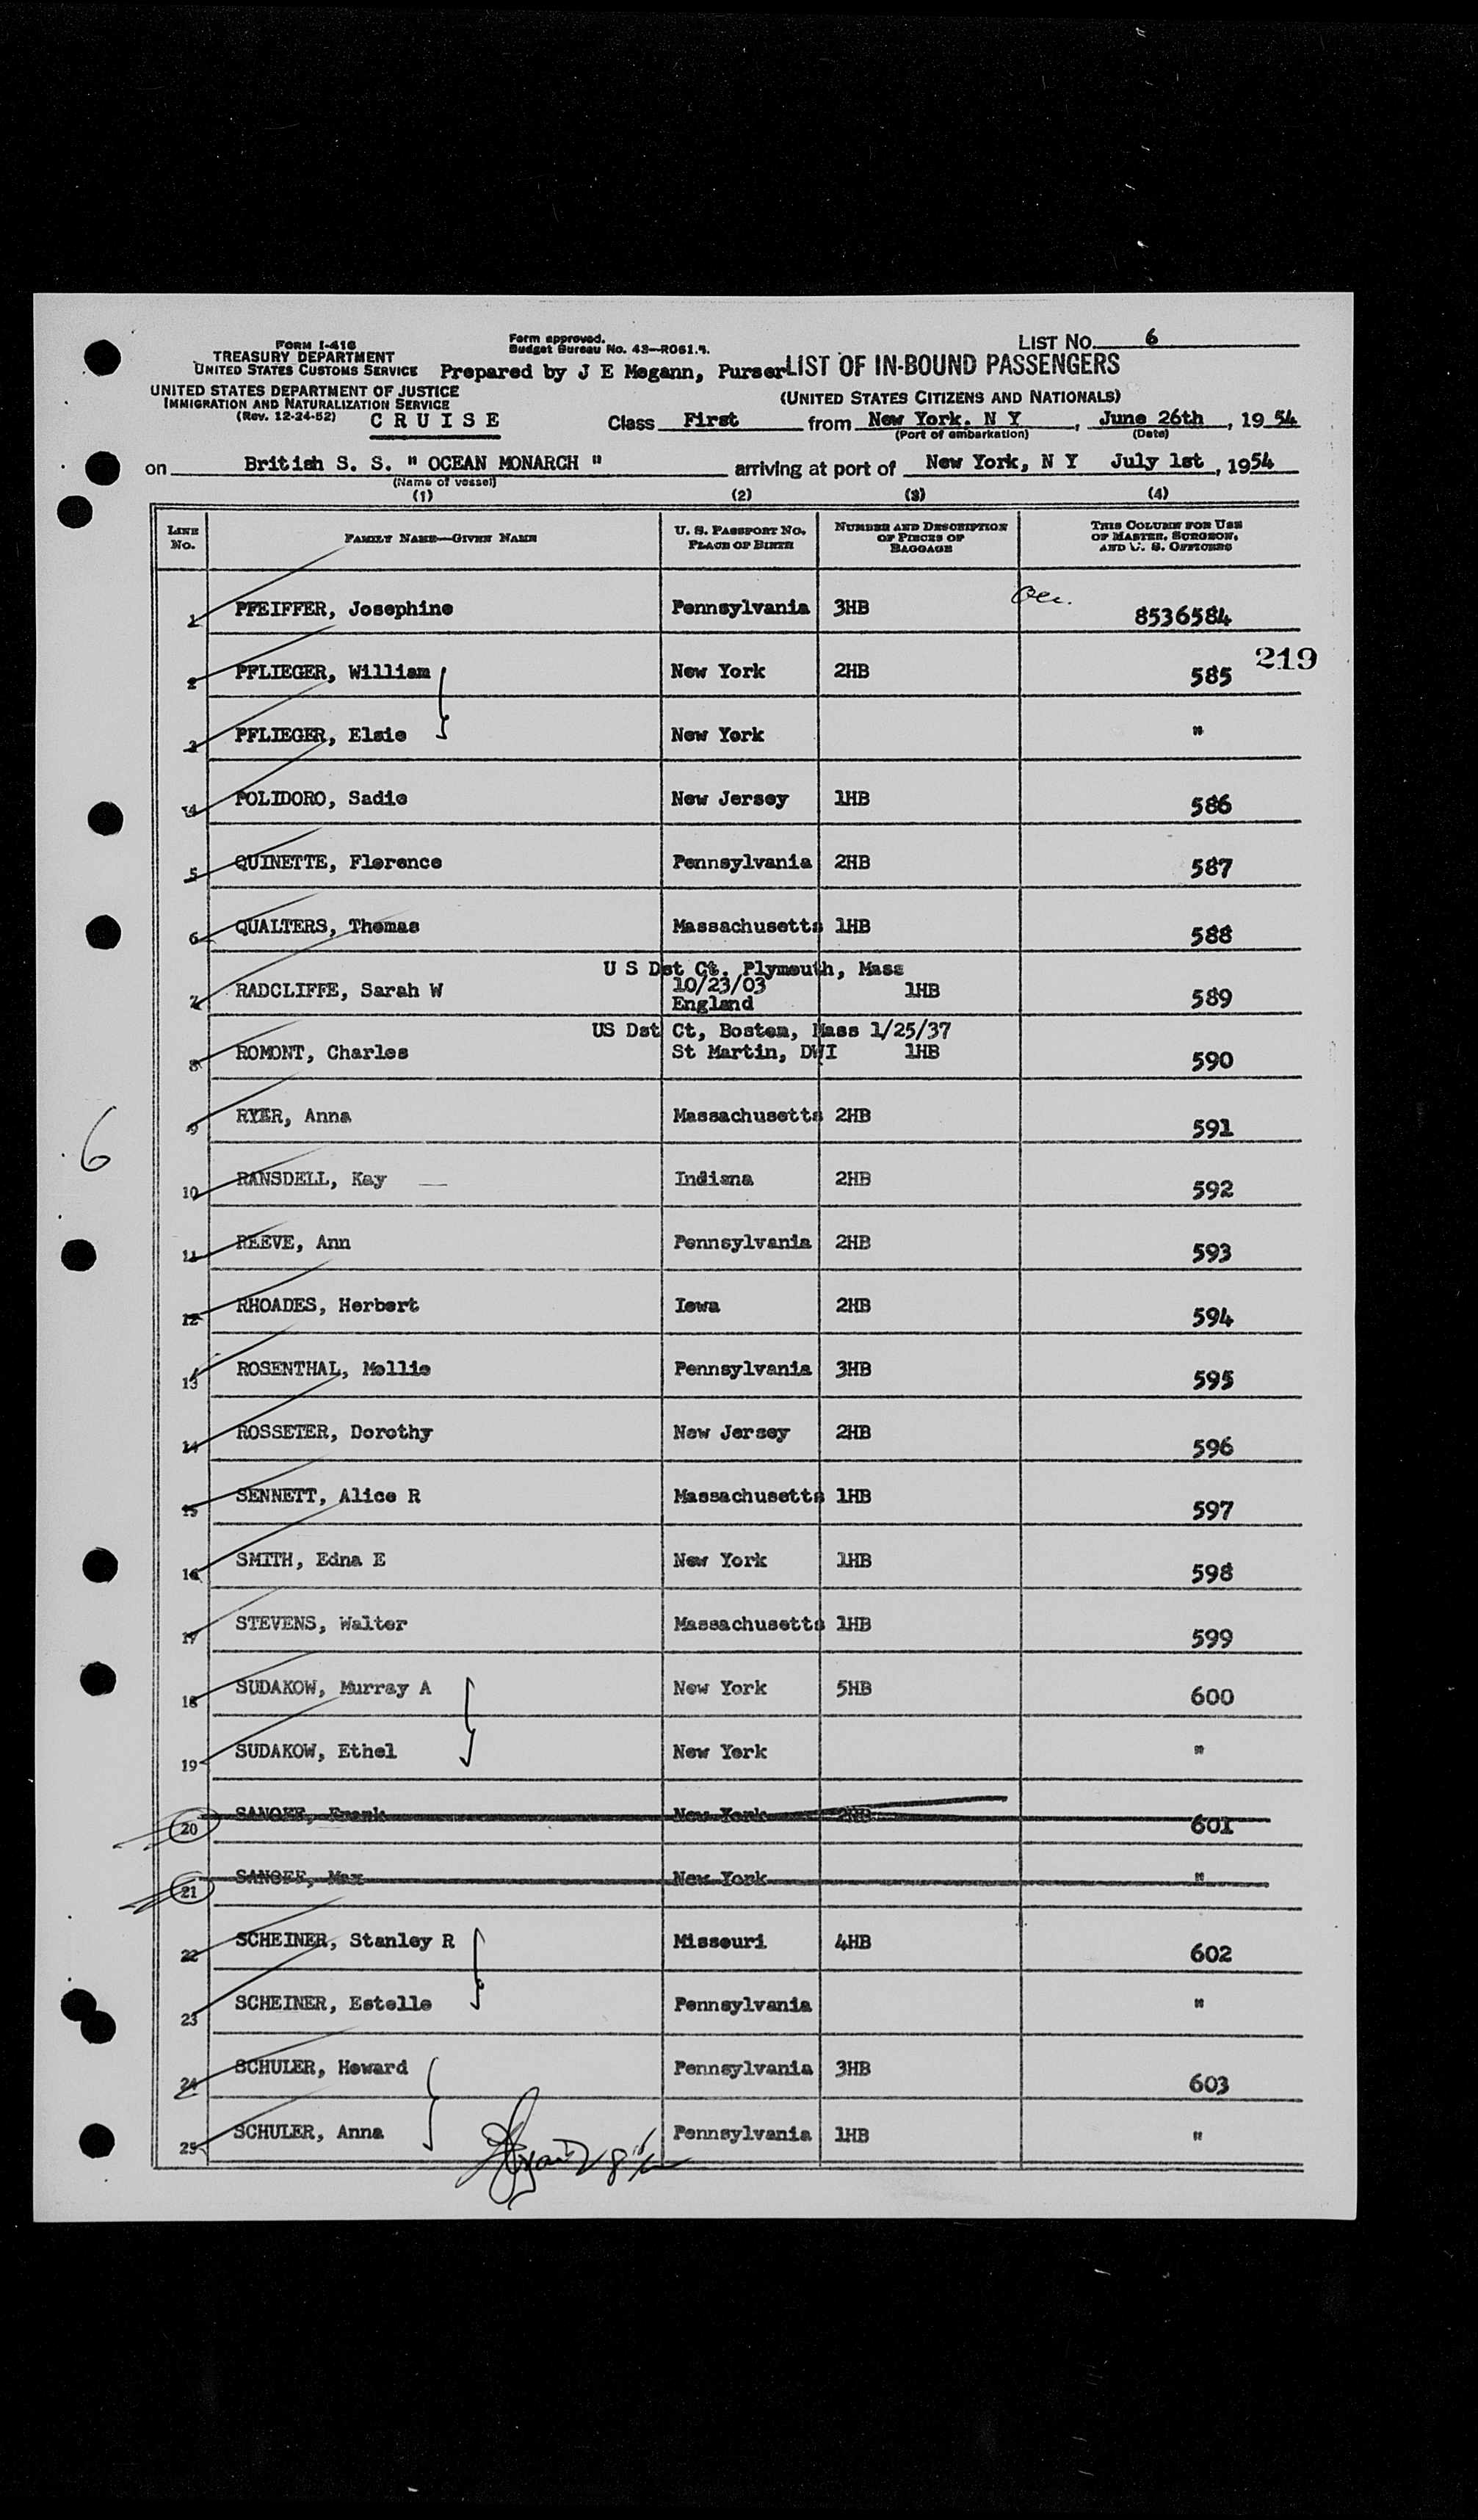 FORM I-416
TREASURY DEPARTMENT
UNITED STATES CUSTOMS SERVICE
UNITED STATES DEPARTMENT OF JUSTICE
IMMIGRATION AND NATURALIZATION SERVICE
(Rev. 12-24-52) C R U I S E
Form approved.
Budget Bureau No. 43—R061.4.
Prepared by J E Megann, Purser
LIST No. 6
LIST OF IN-BOUND PASSENGERS
(UNITED STATES CITIZENS AND NATIONALS)
Class First from New York. N Y, June 26th, 1954
(Port of embarkation) (Date)
on British S. S. " OCEAN MONARCH " arriving at port of New York, N Y July 1st, 1954
(Name of vessel)
(1) (2) (3) (4)
LINE No. FAMILY NAME—GIVEN NAME U. S. PASSPORT No. PLACE OF BIRTH NUMBER AND DESCRIPTION OF PIECES OF BAGGAGE THIS COLUMN FOR USE OF MASTER, SURGEON, AND U. S. OFFICERS
1 PFEIFFER, Josephine Pennsylvania 3HB 8536584
219
2 PFLIEGER, William New York 2HB 585
3 PFLIEGER, Elsie New York "
4 POLIDORO, Sadie New Jersey 1HB 586
5 QUINETTE, Florence Pennsylvania 2HB 587
6 QUALTERS, Thomas Massachusetts 1HB 588
U S Dst Ct. Plymouth, Mass
10/23/03
7 RADCLIFFE, Sarah W England 1HB 589
US Dst Ct, Boston, Mass 1/25/37
8 ROMONT, Charles St Martin, DWI 1HB 590
9 RYER, Anna Massachusetts 2HB 591
6
10 RANSDELL, Kay Indiana 2HB 592
11 REEVE, Ann Pennsylvania 2HB 593
12 RHOADES, Herbert Iowa 2HB 594
13 ROSENTHAL, Mollie Pennsylvania 3HB 595
14 ROSSETER, Dorothy New Jersey 2HB 596
15 SENNETT, Alice R Massachusetts 1HB 597
16 SMITH, Edna E New York 1HB 598
17 STEVENS, Walter Massachusetts 1HB 599
18 SUDAKOW, Murray A New York 5HB 600
19 SUDAKOW, Ethel New York "
20 SANOFF, Frank New York 2HB 601
21 SANOFF, Max New York "
22 SCHEINER, Stanley R Missouri 4HB 602
23 SCHEINER, Estelle Pennsylvania "
24 SCHULER, Howard Pennsylvania 3HB 603
25 SCHULER, Anna Pennsylvania 1HB "